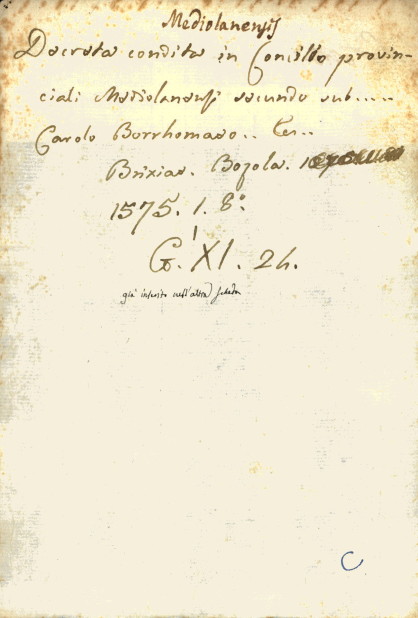 Mediolanensis
Decreta condita in Concilio provin-
ciali Mediolanensi secundo sub.....
Carolo Borrhomaeo..
Brixiae. Bozola.
1575. 1. 8:
G. XI. 24.
già inserito nell'altra scheda
C